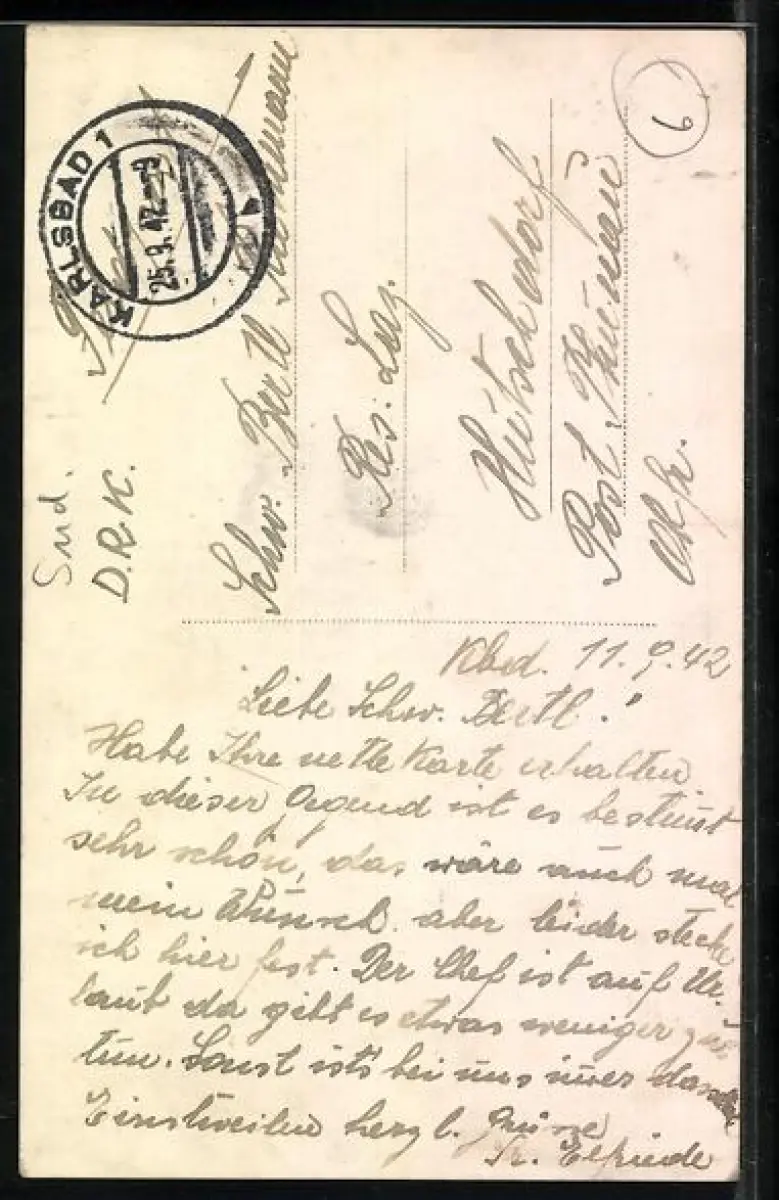 KARLSBAD 1
25.9.42
Snd.
D.R.K.
Schw. Bertl
Res. Laz.
Hütschdorf
Post. Thurnau
Ofr.
6
Kbd. 11.9.42
Liebe Schw. Bertl!
Habe Ihre nette Karte erhalten
In dieser Gegend ist es bestimt
sehr schön, das wäre auch mal
mein Wunsch. aber leider stecke
ich hier fest. Der Chef ist auf Ur-
laub da gibt es etwas weniger zu
tun. Sonst ists bei uns imer das
Einstweilen herzl. Grüsse
Sr. Elfriede